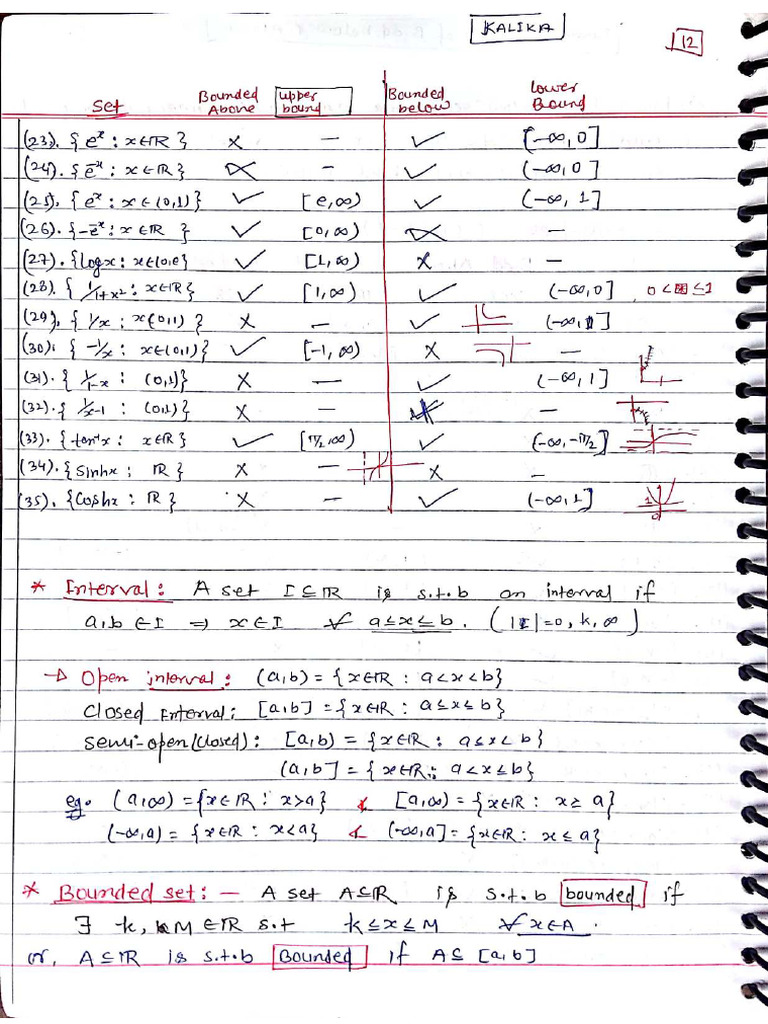 KALIKA
12
Set Bounded Above upper bound Bounded below Lower Bound
(23). { eˣ : x∈ℝ } × — ✓ [-∞, 0]
(24). { e⁻ˣ : x∈ℝ } × — ✓ (-∞, 0]
(25). { eˣ : x∈(0,1) } ✓ [e, ∞) ✓ (-∞, 1]
(26). { -e⁻ˣ : x∈ℝ } ✓ [0, ∞) × —
(27). { logx : x∈(0,e} ✓ [1, ∞) × —
(28). { 1/1+x² : x∈ℝ } ✓ [1, ∞) ✓ (-∞, 0] 0 < ≤ 1
(29). { 1/x : x(0,1) } × — ✓ (-∞, 1]
(30). { -1/x : x∈(0,1) } ✓ [-1, ∞) × —
(31). { 1/1-x : (0,1) } × — ✓ (-∞, 1]
(32). { 1/x-1 : (0,1) } × — —
(33). { tan⁻¹x : x∈ℝ } ✓ [π/2, ∞) ✓ (-∞, -π/2]
(34). { Sinhx : ℝ } × — × —
(35). { Coshx : ℝ } × — ✓ (-∞, 1] 1 0
* Interval : A set I⊆ℝ is s.t.b an interval if
a,b ∈ I ⇒ x∈I ∀ a≤x≤b. ( |I|=0, k, ∞ )
→ Open interval : (a,b) = {x∈ℝ : a<x<b}
Closed Interval : [a,b] = {x∈ℝ : a≤x≤b}
Semi-open(Closed) : [a,b) = {x∈ℝ : a≤x<b}
(a,b] = {x∈ℝ : a<x≤b}
eg. (a,∞) = {x∈ℝ : x>a} & [a,∞) = {x∈ℝ : x≥a}
(-∞,a) = {x∈ℝ : x<a} & (-∞,a] = {x∈ℝ : x≤a}
* Bounded set : — A set A⊆ℝ is s.t.b bounded if
∃ k, M∈ℝ s.t k≤x≤M ∀x∈A.
or, A⊆ℝ is s.t.b Bounded if A⊆ [a,b]